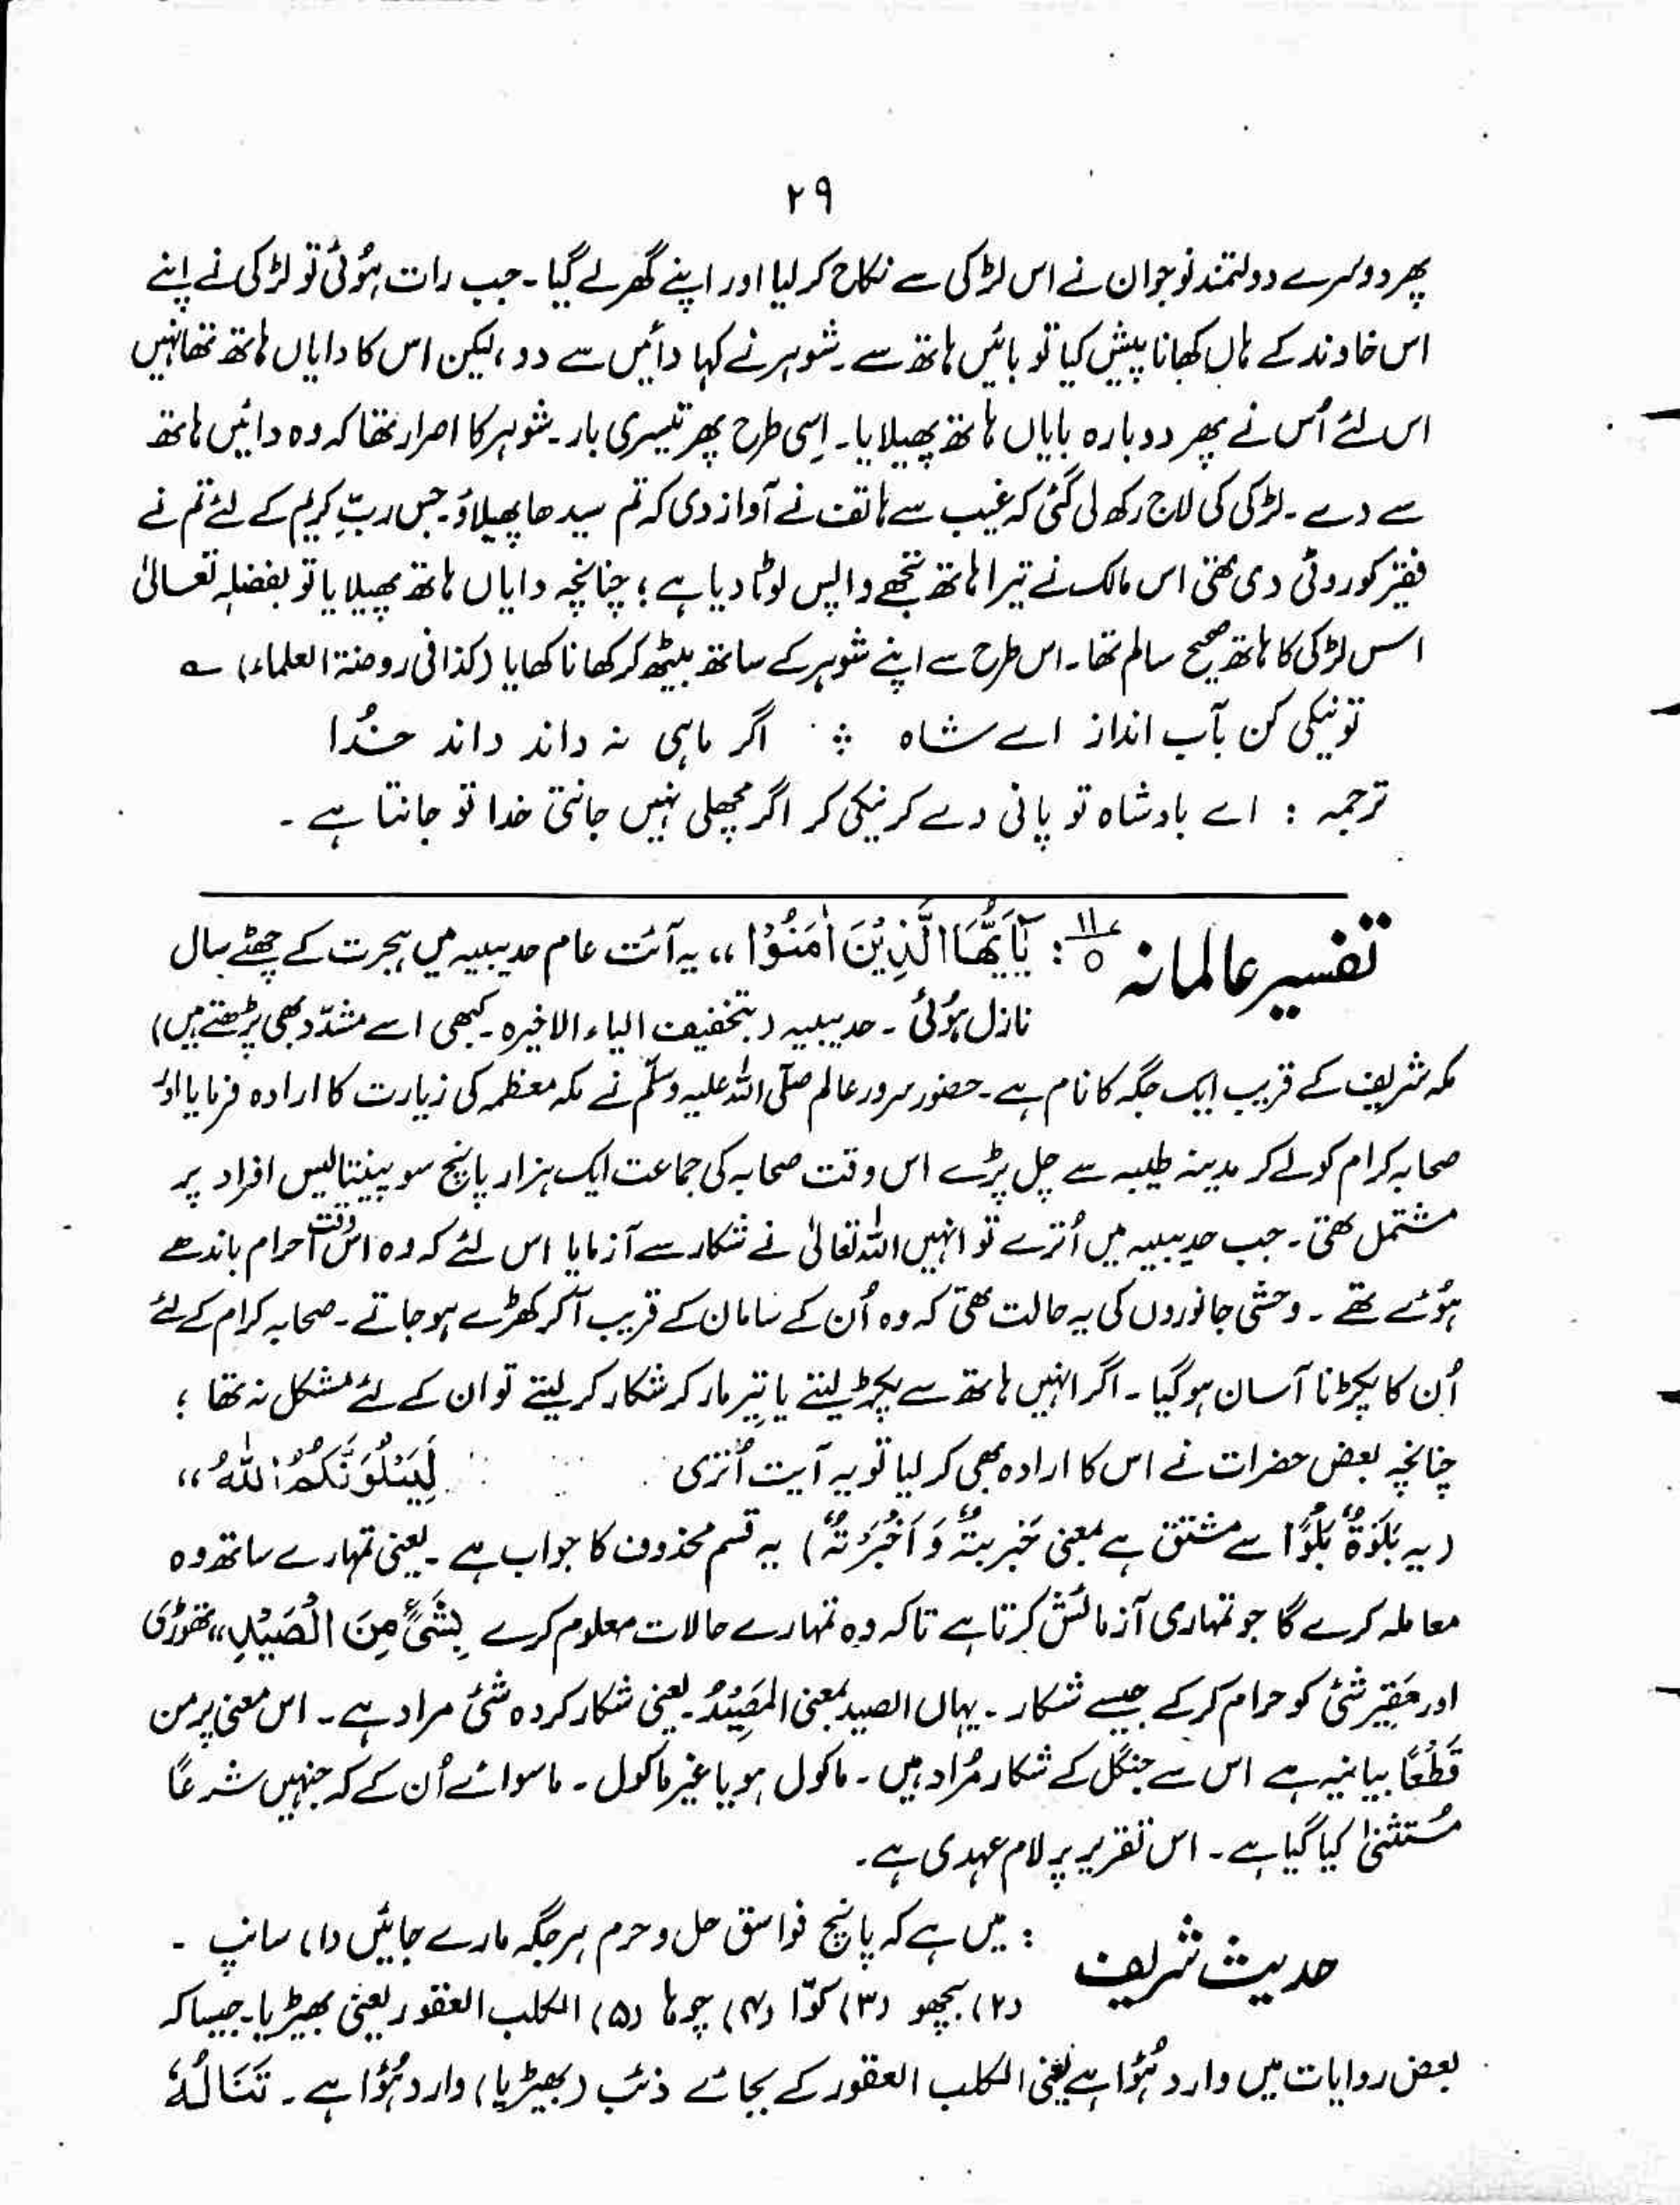 ۲۹
پھر دوسرے دولتمند نوجوان نے اس لڑکی سے نکاح کر لیا اور اپنے گھر لے گیا۔ جب رات ہُوئی تو لڑکی نے اپنے
اس خاوند کے ہاں کھانا پیش کیا تو بائیں ہاتھ سے۔ شوہر نے کہا دائیں سے دو، لیکن اس کا دایاں ہاتھ تھا نہیں
اس لئے اُس نے پھر دوبارہ بایاں ہاتھ پھیلایا۔ اِسی طرح پھر تیسری بار۔ شوہر کا اصرار تھا کہ وہ دائیں ہاتھ
سے دے۔ لڑکی کی لاج رکھ لی گئی کہ غیب سے ہاتف نے آواز دی کہ تم سیدھا پھیلاؤ۔ جس ربِّ کریم کے لئے تم نے
فقیر کو روٹی دی تھی اس مالک نے تیرا ہاتھ تجھے واپس لوٹا دیا ہے؛ چنانچہ دایاں ہاتھ پھیلایا تو بفضلہٖ تعالیٰ
اس لڑکی کا ہاتھ صحیح سالم تھا۔ اس طرح سے اپنے شوہر کے ساتھ بیٹھ کر کھانا کھایا (کذا فی روضۃ العلماء) ؎
تو نیکی کن بآب انداز اے شاہ ؞ اگر ماہی نہ داند داند خُدا
ترجمہ : اے بادشاہ تو پانی دے کر نیکی کر اگر مچھلی نہیں جانتی خدا تو جانتا ہے۔
تفسیر عالمانہ : يٰٓاَيُّهَا الَّذِيْنَ اٰمَنُوْا ،، یہ آئت عام حدیبیہ میں ہجرت کے چھٹے سال
نازل ہُوئی۔ حدیبیہ (بتخفیف الیاء الاخیرہ۔ کبھی اسے مشدّد بھی پڑھتے ہیں)
مکہ شریف کے قریب ایک جگہ کا نام ہے۔ حضور سرور عالم صلّی اللہ علیہ وسلّم نے مکہ معظمہ کی زیارت کا ارادہ فرمایا اور
صحابہ کرام کو لے کر مدینہ طیبہ سے چل پڑے اس وقت صحابہ کی جماعت ایک ہزار پانچ سو پینتالیس افراد پر
مشتمل تھی۔ جب حدیبیہ میں اُترے تو انہیں اللہ تعالیٰ نے شکار سے آزمایا اس لئے کہ وہ اس وقت احرام باندھے
ہُوئے تھے۔ وحشی جانوروں کی یہ حالت تھی کہ وہ اُن کے سامان کے قریب آ کر کھڑے ہو جاتے۔ صحابہ کرام کے لئے
اُن کا پکڑنا آسان ہو گیا۔ اگر انہیں ہاتھ سے پکڑ لیتے یا تیر مار کر شکار کر لیتے تو ان کے لئے مشکل نہ تھا؛
چنانچہ بعض حضرات نے اس کا ارادہ بھی کر لیا تو یہ آیت اُتری لَيَبْلُوَنَّكُمُ اللّٰهُ ،،
(یہ بَلَوْتُہٗ بَلْوًا سے مشتق ہے بمعنی خبربتہٗ وَ اَخْبُرْتُہٗ) یہ قسم محذوف کا جواب ہے۔ یعنی تمہارے ساتھ وہ
معاملہ کرے گا جو تمہاری آزمائش کرتا ہے تاکہ وہ تمہارے حالات معلوم کرے بِشَيْءٍ مِنَ الصَّيْدِ ،، تھوڑی
اور حقیر شئی کو حرام کر کے جیسے شکار۔ یہاں الصید بمعنی المَصِیْدُ۔ یعنی شکار کردہ شئ مراد ہے۔ اس معنی پر من
قَطعًا بیانیہ ہے اس سے جنگل کے شکار مُراد ہیں۔ ماکول ہو یا غیر ماکول۔ ماسوائے اُن کے کہ جنہیں شرعًا
مُستثنیٰ کیا گیا ہے۔ اس تقریر پر لام عہدی ہے۔
حدیث شریف : میں ہے کہ پانچ فواسق حل و حرم ہر جگہ مارے جائیں (۱) سانپ ۔
(۲) بچھو (۳) کوّا (۴) چوہا (۵) الکلب العقور یعنی بھیڑیا۔ جیسا کہ
بعض روایات میں وارد ہُوا ہے یعنی الکلب العقور کے بجائے ذئب (بھیڑیا) وارد ہُوا ہے۔ تَنَالُهٗ